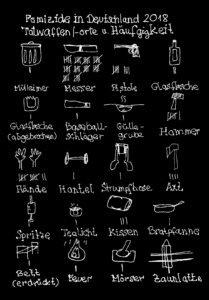 Femizide in Deutschland 2018
Tatwaffen/-orte u. Häufigkeit
Mülleimer Messer Pistole Glasflasche
Glasflasche (abgebrochen) Baseball-schläger Gülle-grube Hammer
Hände Hantel Strumpfhose Axt
Spritze Teelicht Kissen Bratpfanne
Bett (erdrückt) Feuer Mörser Zaunlatte